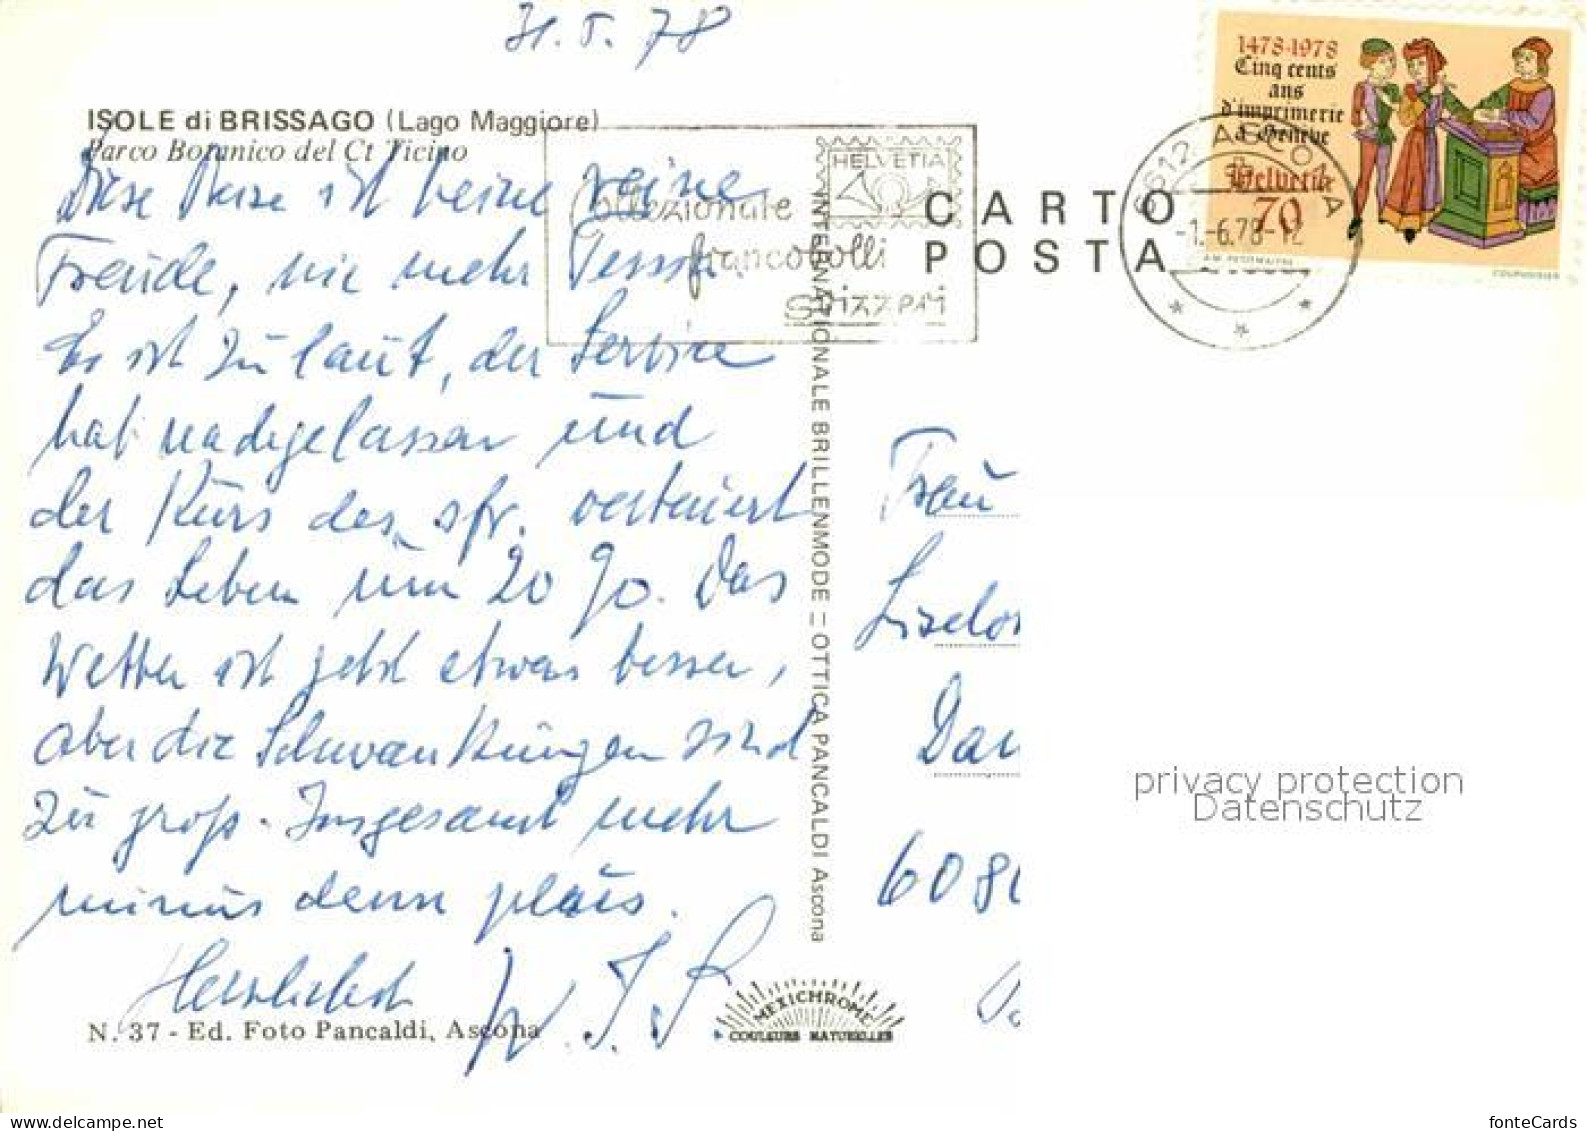 31.5.78
ISOLE di BRISSAGO (Lago Maggiore)
Parco Botanico del Ct Ticino
Diese Reise ist keine reine
Freude, nie mehr Tessin.
Es ist zu laut, der Service
hat nachgelassen und
der Kurs des sfr. verteuert
das Leben um 20 %. Das
Wetter ist jetzt etwas besser,
aber die Schwankungen sind
zu groß. Insgesamt mehr
minus denn plus.
Herzlichst
W. J. S.
N. 37 - Ed. Foto Pancaldi, Ascona
MEXICHROME
COULEURS NATURELLES
INTERNATIONALE BRILLENMODE = OTTICA PANCALDI Ascona
HELVETIA
Collezionate
francobolli
svizzeri
CARTO
POSTA
6612 ASCONA
-1.-6.78-12
1478·1978
Cinq cents
ans
d'imprimerie
à Genève
Helvetia
70
COURVOISIER
Frau
Liselo
Da
608
privacy protection
Datenschutz
fonteCards